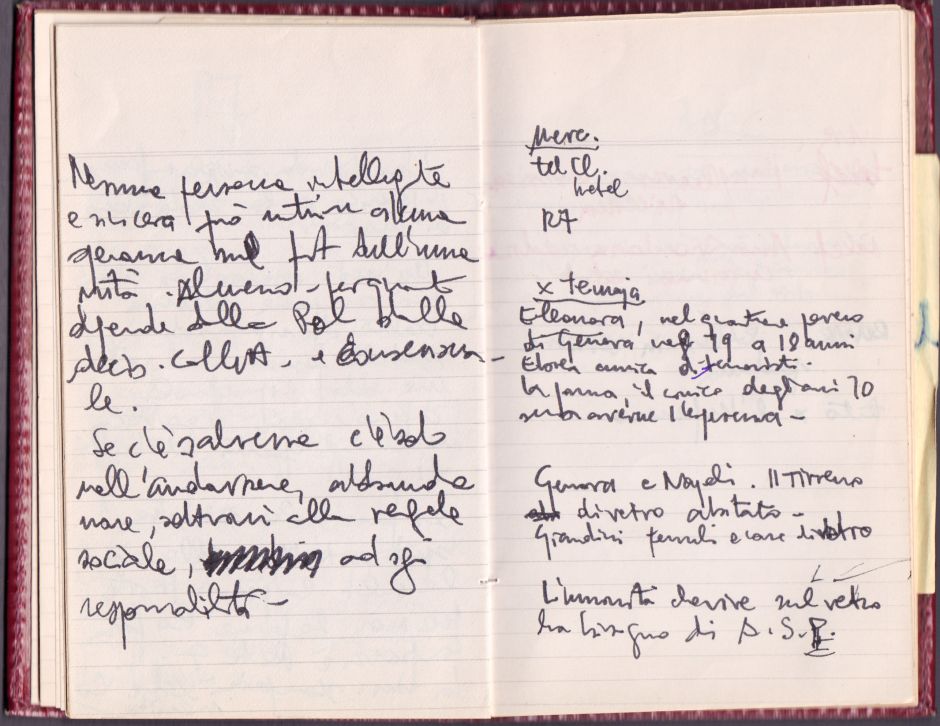 Nessuna persona intelligente
e sincera può nutrire alcuna
speranza sul fut dell'uma
nità. Almeno - perquanto
dipende dalla Pol dalla
decis. collett. e consensua-
le.
Se c'è salvezza c'è solo
nell'andarsene, abbando
nare, sottrarsi alla regola
sociale, ad ogni
responsabilità -
Merc.
tel Cl.
hotel
R7
x
Eleonora, nel quartiere povero
di Genova nel 79 a 18 anni
amica di terroristi.
la donna, il degli anni 70
senza averne l'esperienza -
Genova e Napoli. Il Tirreno
di vetro abitato -
Giardini pensili e case di vetro
L'umanità che vive sul vetro
ha bisogno di A.S.P.